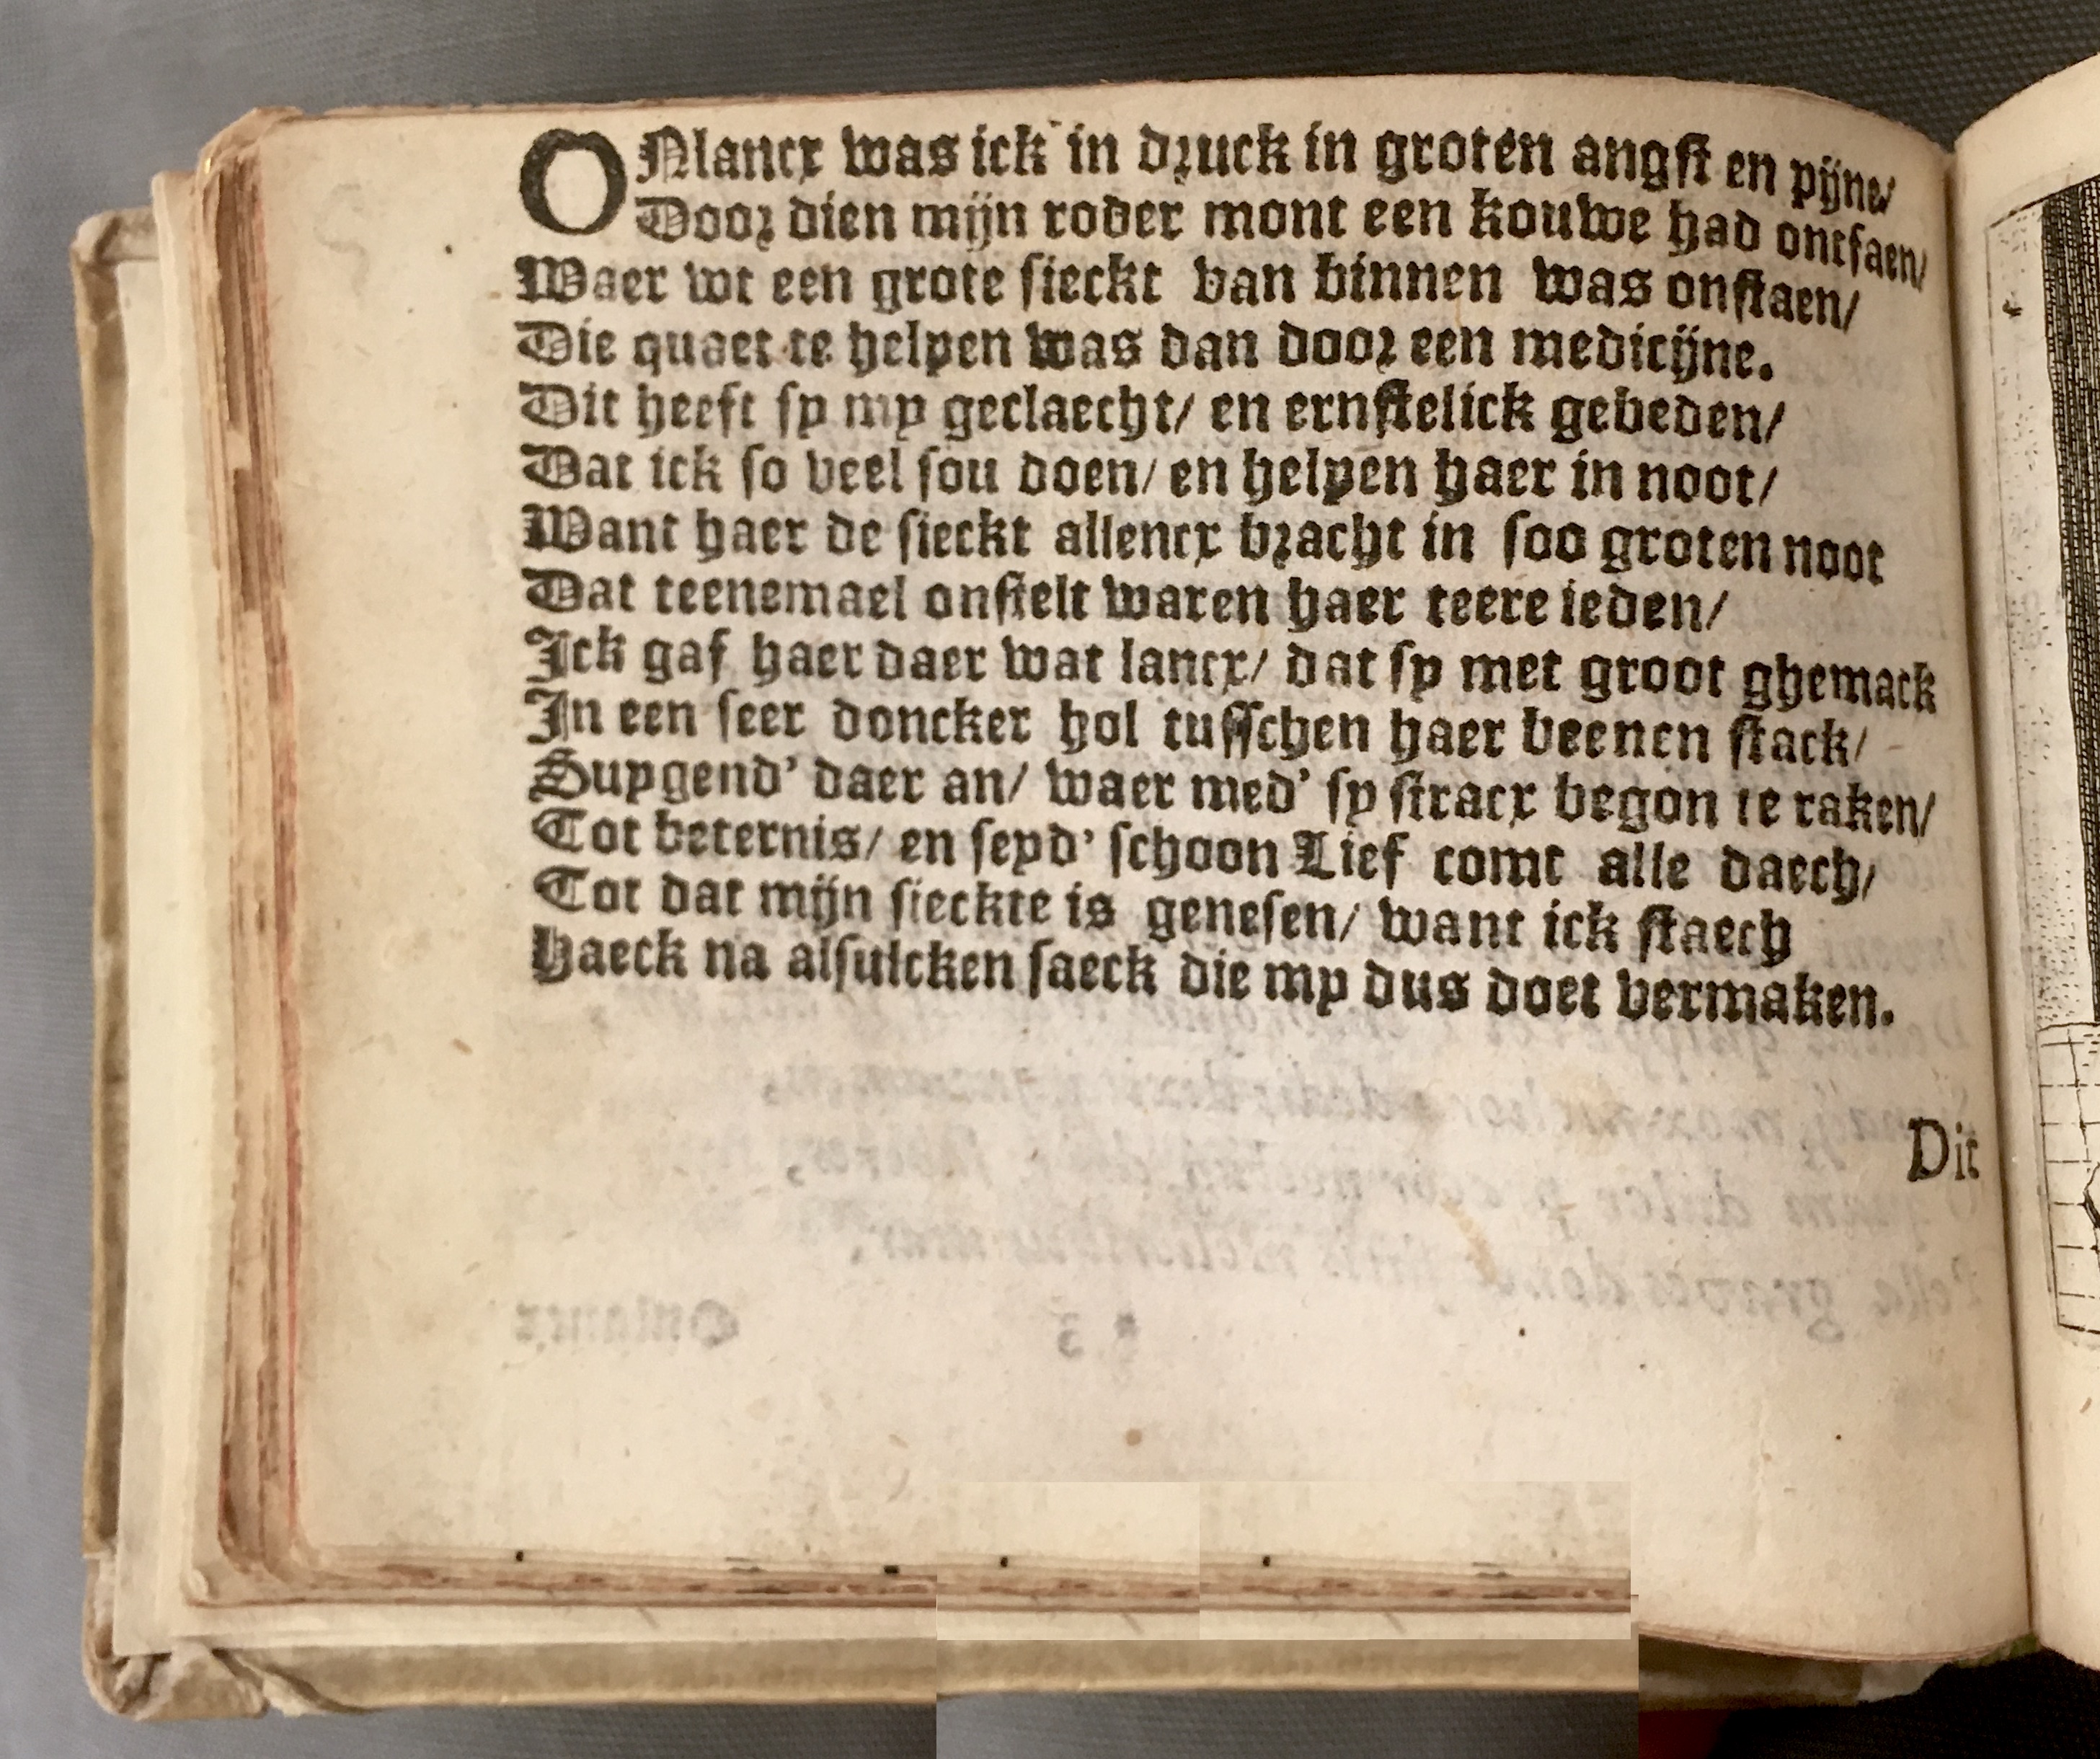 ONlancx was ick in druck in groten angst en pijne/
Door dien mijn roder mont een kouwe had ontfaen/
Waer wt een grote sieckt van binnen was onstaen/
Die quaet te helpen was dan door een medicijne.
Dit heeft sy my geclaecht/ en ernstelick gebeden/
Dat ick so veel sou doen/ en helpen haer in noot/
Want haer de sieckt allencx bracht in soo groten noot
Dat teenemael onstelt waren haer teere leden/
Ick gaf haer daer wat lancx/ dat sy met groot ghemack
In een seer doncker hol tusschen haer beenen stack/
Suygend' daer an/ waer med' sy stracx begon te raken/
Tot beternis/ en seyd' schoon Lief comt alle daech/
Tot dat mijn sieckte is genesen/ want ick staech
Haeck na alsulcken saeck die my dus doet vermaken.
Dit